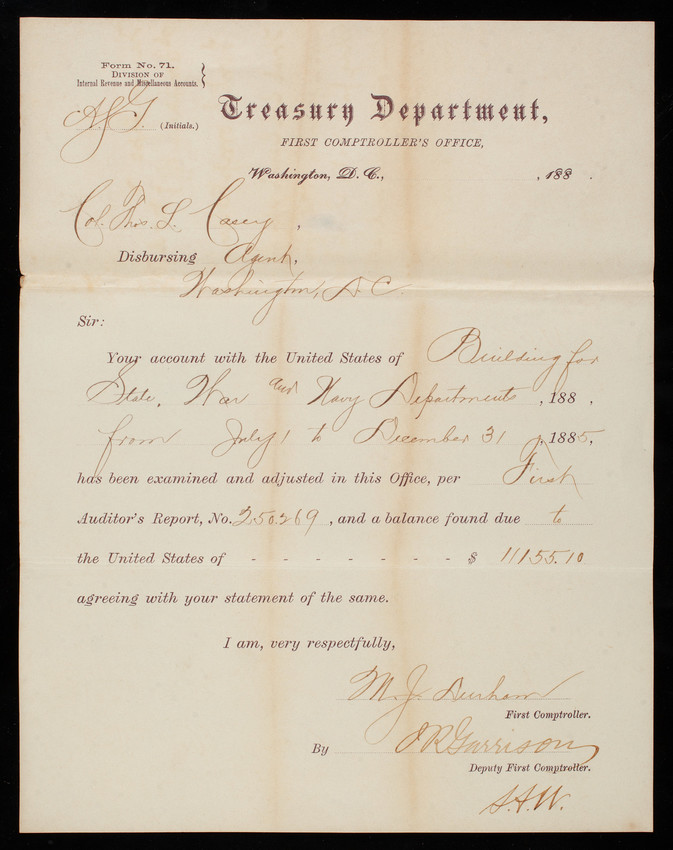 Form No. 71.
Division of
Internal Revenue and Miscellaneous Accounts.
(Initials.)
Treasury Department,
FIRST COMPTROLLER'S OFFICE,
Washington, D. C., , 188 .
Col. Thos. L. Casey ,
Disbursing Agent,
Washington, D.C.
Sir:
Your account with the United States of Building for
State, War and Navy Departments , 188 ,
from July 1 to December 31 , 1885,
has been examined and adjusted in this Office, per First
Auditor's Report, No. 250269 , and a balance found due to
the United States of - - - - - - - - $ 11155.10
agreeing with your statement of the same.
I am, very respectfully,
M. J. Durham
First Comptroller.
By J R Garrison
Deputy First Comptroller.
S.A.W.